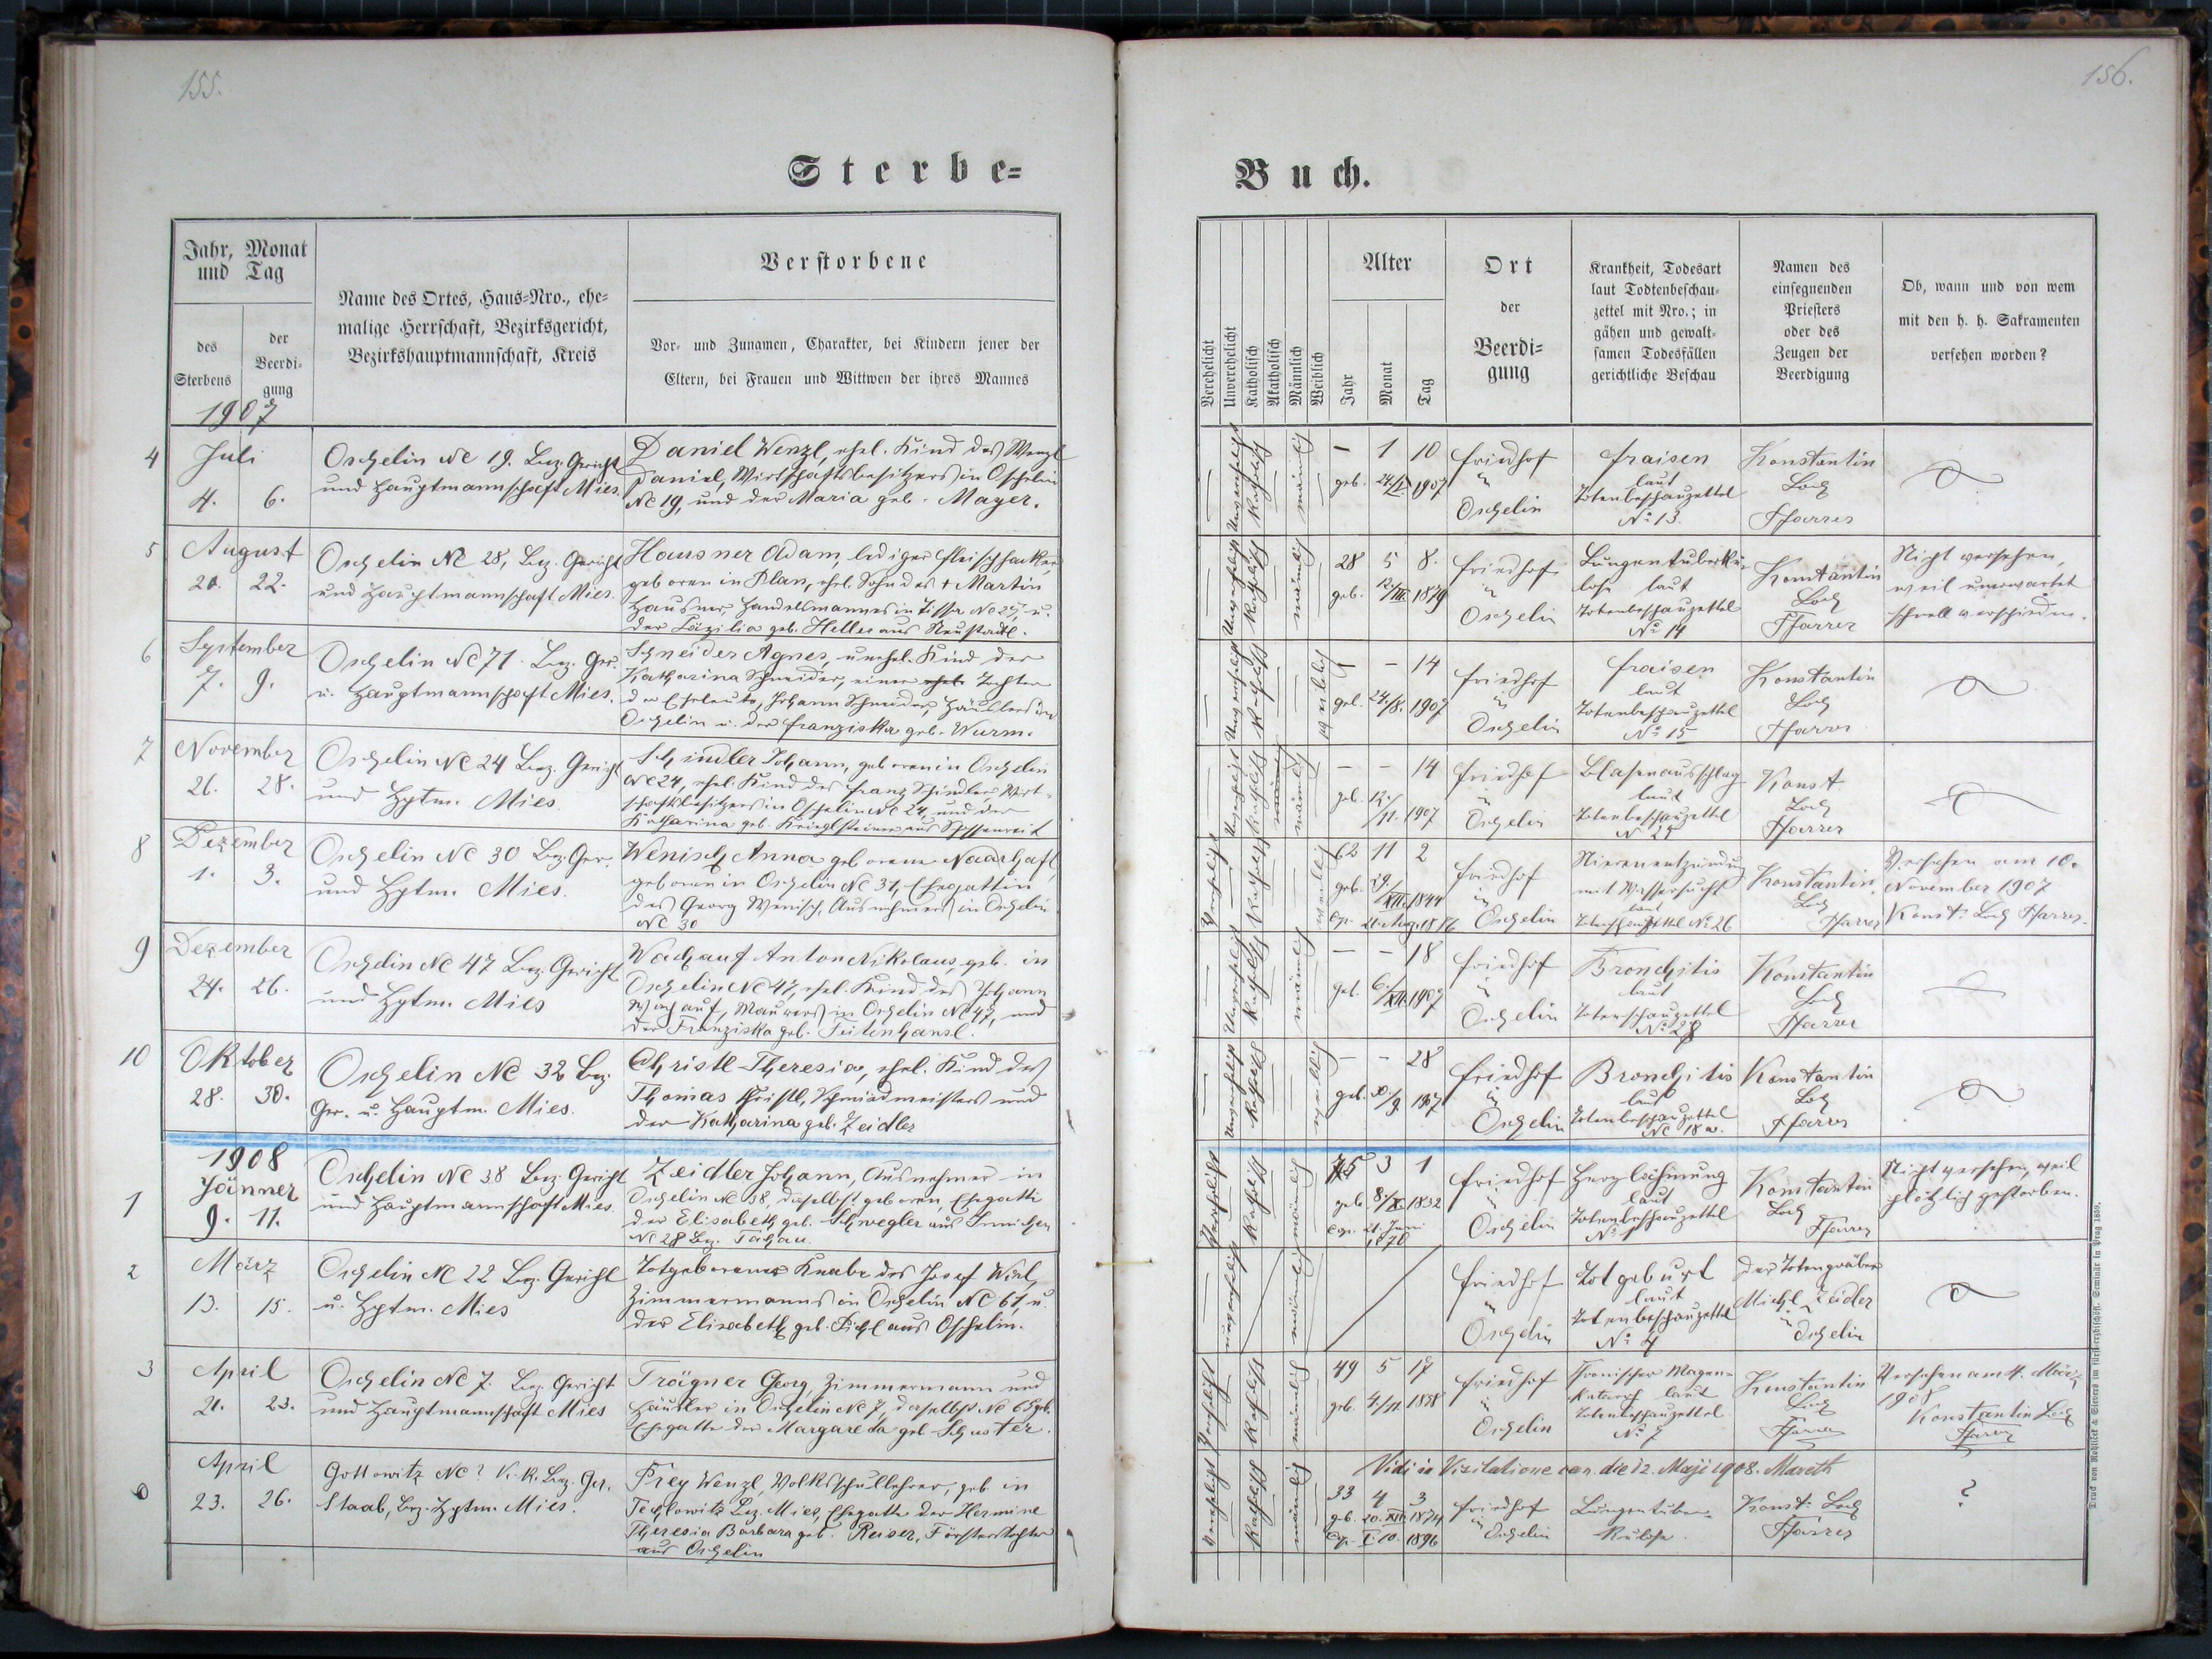 155.
156.
Sterbe-
Buch.
Jahr, Monat
und Tag
des
Sterbens
der
Beerdi-
gung
Name des Ortes, Haus-Nro., ehe-
malige Herrschaft, Bezirksgericht,
Bezirkshauptmannschaft, Kreis
Verstorbene
Vor- und Zunamen, Charakter, bei Kindern jener der
Eltern, bei Frauen und Wittwen der ihres Mannes
Verehelicht
Unverehelicht
Katholisch
Akatholisch
Männlich
Weiblich
Alter
Jahr
Monat
Tag
Ort
der
Beerdi-
gung
Krankheit, Todesart
laut Todtenbeschau-
zettel mit Nro.; in
gähen und gewalt-
samen Todesfällen
gerichtliche Beschau
Namen des
einsegnenden
Priesters
oder des
Zeugen der
Beerdigung
Ob, wann und von wem
mit den h. h. Sakramenten
versehen worden?
1907
4
Juli
4. 6.
Oschelin Nc 19. Bez. Gericht
und Hauptmannschaft Mies.
Daniel Wenzl, ehel. Kind des Wenzl
Daniel, Wirtschaftsbesitzers in Oschelin
Nc 19, und der Maria geb. Mayer.
Unverehelicht
Katholisch
männlich
– 1 10
geb. 24./V. 1907
Friedhof
in
Oschelin
Fraisen
laut
Totenbeschauzettel
No 13.
Konstantin
Loch
Pfarrer
5
August
20. 22.
Oschelin Nc 28, Bez. Gericht
und Hauptmannschaft Mies.
Hausner Adam, lediger Fleischhacker
geboren in Plan, ehel. Sohn des † Martin
Hausner, Handelsmannes in Tissa No 29, u.
der Cäzilia geb. Heller aus Neustadtl.
Unverehelicht
Katholisch
männlich
28 5 8.
geb. 12/III. 1879
Friedhof
in
Oschelin
Lungentuberku-
lose laut
Totenbeschauzettel
No 14
Konstantin
Loch
Pfarrer
Nicht versehen,
weil unerwartet
schnell verschieden.
6
September
7. 9.
Oschelin Nc 71. Bez. Ger.
u. Hauptmannschaft Mies.
Schneider Agnes, unehel. Kind der
Katharina Schneider, einer ehel. Tochter
der Eheleute, Johann Schneider, Häuslers in
Oschelin u. der Franziska geb. Wurm.
Unverehelicht
Katholisch
weiblich
– – 14
geb. 24./8. 1907
Friedhof
in
Oschelin
Fraisen
laut
Totenbeschauzettel
No 15
Konstantin
Loch
Pfarrer
7
November
26. 28.
Oschelin Nc 24 Bez. Gericht
und Hptm. Mies.
Schindler Johann, geboren in Oschelin
Nc 24, ehel. Kind des Franz Schindler Wirt-
schaftsbesitzers in Oschelin Nc 24 und der
Katharina geb.
Unverehelicht
Katholisch
männlich
– – 14
geb. 12./11. 1907
Friedhof
in
Oschelin
Blasenausschlag
laut
Totenbeschauzettel
Konst.
Loch
Pfarrer
8
Dezember
1. 3.
Oschelin Nc 30 Bez. Ger.
und Hptm. Mies.
Wenisch Anna geborene Naarhaft,
geboren in Oschelin Nc 31, Ehegattin
des Georg Wenisch, Ausnehmers in Oschelin
Nc 30
Verehelicht
Katholisch
weiblich
62 11 2
geb. 29/XII. 1844
Friedhof
in
Oschelin
Nierenentzündung
mit Wassersucht
laut
No 26
Konstantin
Loch
Pfarrer
Versehen am 10.
November 1907
Konst. Loch Pfarrer.
9
Dezember
24. 26.
Oschelin Nc 47 Bez. Gericht
und Hptm. Mies
Wachauf Anton Nikolaus, geb. in
Oschelin Nc 47, ehel. Kind des Johann
Wachauf, Maurers in Oschelin Nc 47, und
der Franziska geb. Seitenhansl.
Unverehelicht
Katholisch
männlich
– – 18
geb. 6./XII. 1907
Friedhof
in
Oschelin
Bronchitis
laut
Totenschauzettel
No 28
Konstantin
Loch
Pfarrer
10
Oktober
28. 30.
Oschelin Nc 32 Bez.
Ger. u. Hauptm. Mies.
Christl Theresia, ehel. Kind des
Thomas Christl, Schmiedmeisters und
der Katharina geb. Zeidler
Unverehelicht
Katholisch
weiblich
– – 28
geb. 30/9. 1907
Friedhof
in
Oschelin
Bronchitis
laut
Totenbeschauzettel
Nc 18 a.
Konstantin
Loch
Pfarrer
1908
1
Jänner
9. 11.
Oschelin Nc 38 Bez. Gericht
und Hauptmannschaft Mies.
Zeidler Johann, Ausnehmer in
Oschelin Nc 38, daselbst geboren, Ehegatte
der Elisabeth geb. Schwegler aus
Nc 28 Bez. Tachau.
Verehelicht
Katholisch
männlich
75 3 1
geb. 8./X. 1832
Cop. 21. Juni
1870
Friedhof
in
Oschelin
Herzlähmung
laut
Totenbeschauzettel
No 1
Konstantin
Loch
Pfarrer
Nicht versehen, weil
plötzlich gestorben.
2
März
13. 15.
Oschelin Nc 22 Bez. Gericht
u. Hptm. Mies
Totgeborener Knabe des Josef
Zimmermanns in Oschelin Nc 61, u.
der Elisabeth geb. Pichl aus Oschelin.
unverehelicht
männlich
Friedhof
in
Oschelin
Totgeburt
laut
Totenbeschauzettel
No 4
Der Totengräber
Michl Zeidler
in
Oschelin
3
April
21. 23.
Oschelin Nc 7. Bez. Gericht
und Hauptmannschaft Mies
Trägner Georg, Zimmermann und
Häusler in Oschelin Nc 7, daselbst Nc 65 geb.
Ehegatte der Margareta geb. Schuster.
Verehelicht
Katholisch
männlich
49 5 17
geb. 4./11. 1858
Friedhof
in
Oschelin
Chronischer Magen-
katarrh laut
Totenbeschauzettel
No 7
Konstantin
Loch
Pfarrer
Versehen am 4. März
1908
Konstantin Loch
Pfarrer
Vidi in Visitatione can. die 12. Maji 1908. Mareth
April
23. 26.
Gottowitz Nc? K. k. Bez. Ger.
Staab, Bez. Hptm. Mies.
Frey Wenzl, Volksschullehrer, geb. in
Techlowitz Bez. Mies, Ehegatte der Hermine
Theresia Barbara geb. Reiser, Försterstochter
aus Oschelin
Verehelicht
Katholisch
männlich
33 4 3
geb. 20. XII. 1874
Cop. I. 10. 1896
Friedhof
in
Oschelin
Lungentuber-
kulose.
Konst. Loch
Pfarrer
?
Druck von Rohliček & Sievers im fürsterzbischöfl. Seminär in Prag 1889.